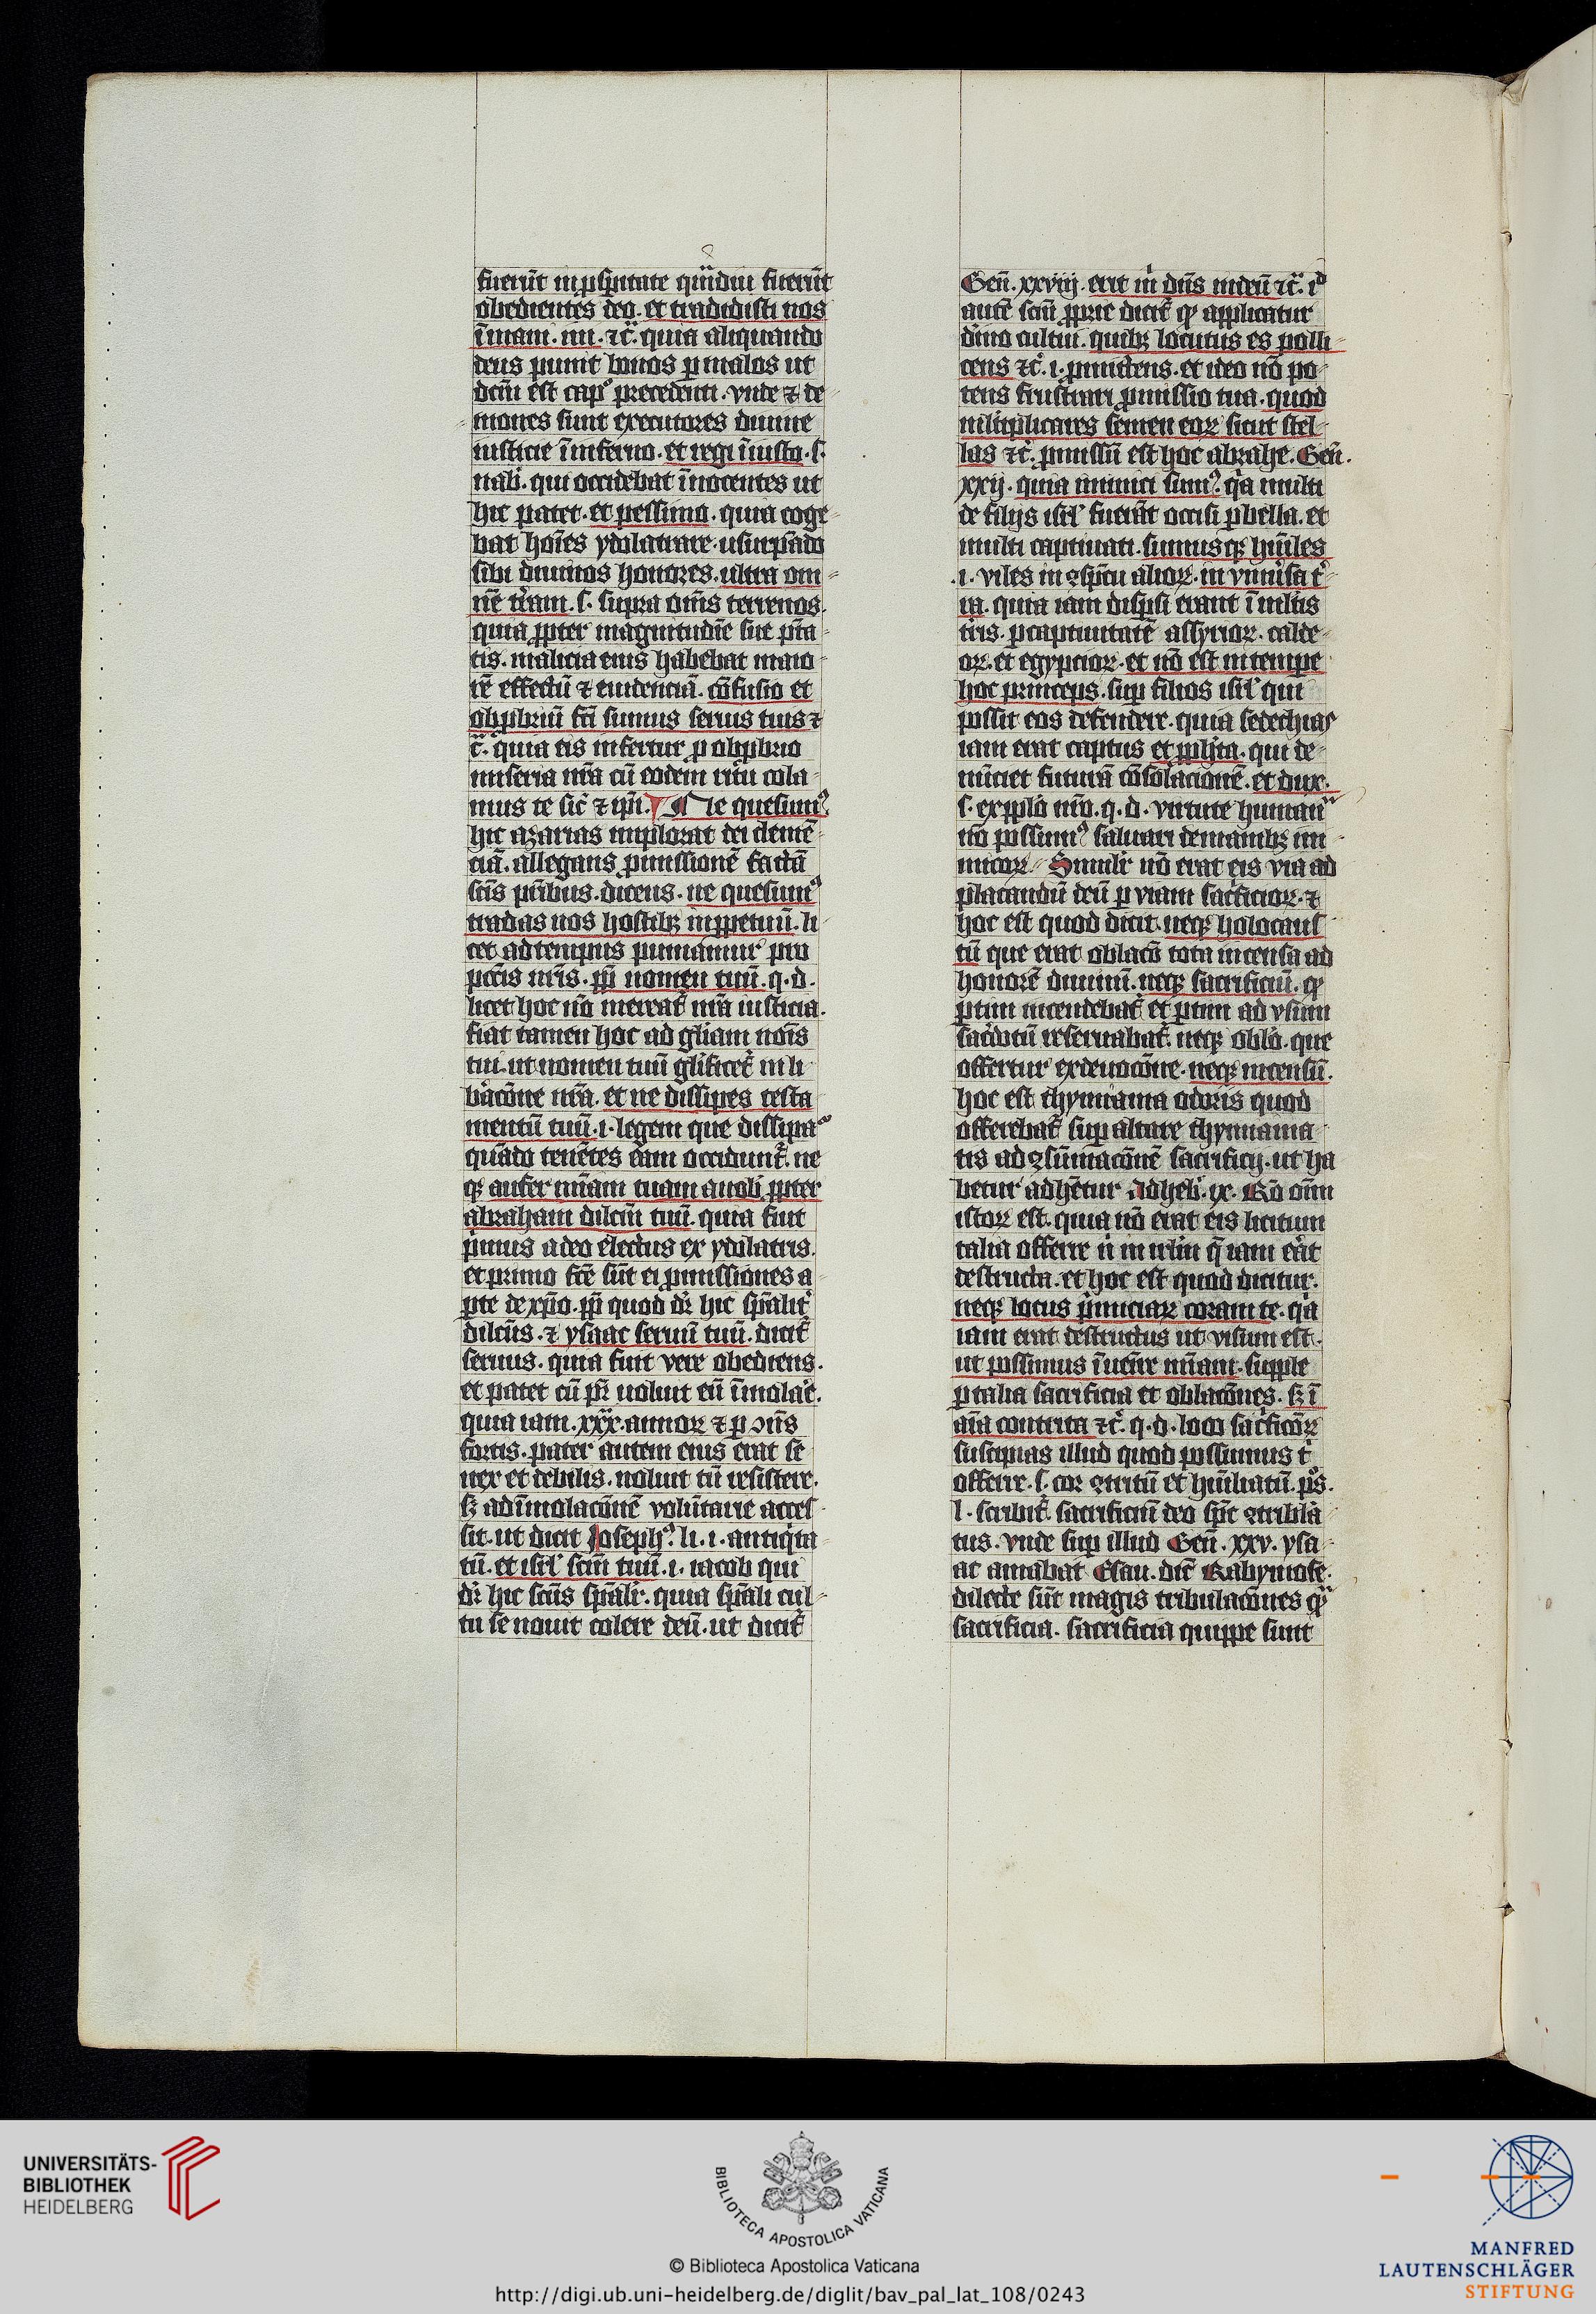 fuerūt in ꝓsp̱itate qͣmdiu fuerūt
obedientes deo. et tradidisti nos
ī manꝰ. ini. ⁊c̄. quia aliquando
deus punit bonos ꝑ malos ut
dcm̄ est capͦ precedenti. vnde ⁊ de
mones sunt executores diuine
iusticie ī inferno. et regi īiusto. s.
nab̄. qui occidebat īnocentes ut
hic patet. et pessimo. quia coge
bat hoīes ydolatrare. usurpādo
sibi diuinos honores. ultra om
nē tr̄am. s. supra om̄s terrenos.
quia ꝓpter magnitudīe sue pt̄a
tis. malicia eius habebat maio
rē effectū ⁊ euidenciā. cōfusio et
obꝓbriū fc̄i sumus seruis tuis ⁊
c̄. quia eis infertur ꝓ obꝓbrio
miseria nr̄a cū eodem ritu cola
mus te sic̄ ⁊ ip̄i. Ne quesumꝰ
hic azarias implorat dei clemē
ciā. allegans ꝓmissionē factā
sc̄is pr̄ibus. dicens. ne quesumꝰ
tradas nos hostibꝫ inꝑpetuū. li
cet ad tempus puniamur pro
pctis nr̄is. ꝓpt̄ nomen tuū. q. d.
licet hoc nō mereat̄ nr̄a iusticia.
fiat tamen hoc ad gl̄iam noīs
tui. ut nomen tuū gl̄ificet̄ in li
b̄acōne nr̄a. et ne dissipes testa
mentū tuū. i. legem que dissipaͬ
quādo tenētes eam occidunt̄. ne
qꝫ aufer mīam tuam a nob̄ ꝓpter
abraham dilcm̄ tuū. quia fuit
p̄mus a deo electus ex ydolatris.
et primo fc̄e sūt ei ꝓmissiones a
ꝑte de xp̄o. ꝓpt̄ quod dr̄ hic sp̄alit̄
dilc̄us. ⁊ ysaac seruū tuū. dicit̄
seruus. quia fuit vere obediens.
et patet cū pr̄ uoluit eū īmolar̄e.
quia iam. xxx. annoꝝ ⁊ ꝑ ↄn̄s
fortis. pater autem eius erat se
nex et debilis. noluit tn̄ resistere.
sꝫ ad īmolacōnē volūtarie acces
sit. ut dicit Josephꝰ. li. i. antiq̄ta
tū. et isrl̄ scm̄ tuū. i. iacob qui
dr̄ hic sc̄us sp̄alit̄. quia sp̄ali cul
tu se nouit colere deū. ut dicit̄
Gen̄. xxviij. erit m̄ dn̄s in deū ⁊c̄. iᵈ
autē scm̄ ꝓprie dicit̄ ꝙ applicatur
diuīo cultui. quibꝫ locutus es polli
cens ⁊c̄. i. ꝓmittens. et ideo nō po
tens frustrari ꝓmissio tua. quod
ml̄tiplicares semen eoꝝ sicut stel
las ⁊c̄. ꝓmissū est hoc abrahe. Gen̄.
xxij. quia minuti sumꝰ. q̄a multi
de filijs isrl̄ fuerūt occisi ꝑ bella. et
multi captiuati. sumusqꝫ hūiles
i. viles in ↄspc̄u alioꝝ. in vniūsa t̄
ra. quia iam disꝑsi erant ī ml̄tis
tr̄is. ꝑ captiuitatē assyrioꝝ. calde
oꝝ. et egyptioꝝ. et nō est in tempe
hoc princeps. suꝑ filios isrl̄ qui
possit eos defendere. quia sedechias
iam erat captus et ꝓph̄ta. qui de
nūciet futurā cōsolacionē. et dux.
s. ex ppl̄o nr̄o. q. d. virtute humanͣ
nō possumꝰ saluari de manibꝫ ini
micoꝝ. Simil̄r nō erat eis via ad
placandū deū ꝑ viam sacr̄ficioꝝ. ⁊
hoc est quod dicit. neqꝫ holocaus
tū que erat oblacō tota incensa ad
honorē diuinū. neqꝫ sacrificiū. ꝙ
ꝑtim incendebat̄ et ꝑtim ad vsum
sacr̄dotū reseruabat̄. neqꝫ obl̄o. que
offertur ex deuocōne. neqꝫ incensū.
hoc est thymiama odoris quod
offerebat̄ suꝑ altare thymiama
tis ad ↄsūmacōnē sacrificij. ut ha
betur adhētur Ad heb̄. ix. Rō om̄
istoꝝ est. quia nō erat eis licitum
talia offerre n̄ in ierl̄m q̄ iam er̄at
destructa. et hoc est quod dicitur.
neqꝫ locus p̄miciaꝝ coram te. q̄a
iam erat destructus ut visum est.
ut possimus īuenīre mīam. supple
ꝑ talia sacrificia et oblacōnes. sꝫ ī
aīa contrita ⁊c̄. q. d. loco sacr̄ficōꝝ
suscipias illud quod possumus t̄
offerre. s. cor ↄtritū et hūiliatū. ps̄.
l. scribit̄. sacrificiū deo spc̄ ↄtribla
tus. vnde suꝑ illud Gen̄. xxv. ysa
ac amabat Esau. dic̄ Rabymose.
dilecte sūt magis tribulacōnes ꝙͣ
sacrificia. sacrificia quippe sunt
UNIVERSITÄTS-
BIBLIOTHEK
HEIDELBERG
BIBLIOTECA APOSTOLICA VATICANA
© Biblioteca Apostolica Vaticana
http://digi.ub.uni-heidelberg.de/diglit/bav_pal_lat_108/0243
MANFRED
LAUTENSCHLÄGER
STIFTUNG